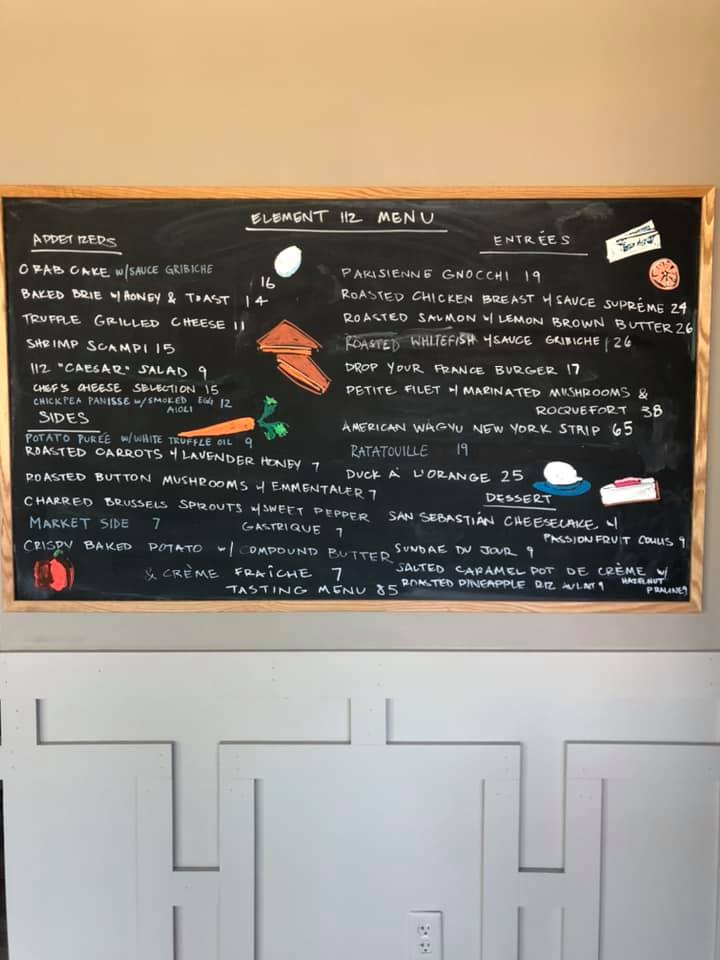 ELEMENT 112 MENU
APPETIZERS
CRAB CAKE W/SAUCE GRIBICHE
16
BAKED BRIE W/ HONEY & TOAST 14
TRUFFLE GRILLED CHEESE 11
SHRIMP SCAMPI 15
112 "CAESAR" SALAD 9
CHEF'S CHEESE SELECTION 15
CHICKPEA PANISSE W/SMOKED EGG 12
AIOLI
SIDES
POTATO PURÉE W/WHITE TRUFFLE OIL 9
ROASTED CARROTS W/ LAVENDER HONEY 7
ROASTED BUTTON MUSHROOMS W/ EMMENTALER 7
CHARRED BRUSSELS SPROUTS W/SWEET PEPPER
GASTRIQUE 7
MARKET SIDE 7
CRISPY BAKED POTATO W/ COMPOUND BUTTER
& CRÈME FRAÎCHE 7
TASTING MENU 85
ENTRÉES
PARISIENNE GNOCCHI 19
ROASTED CHICKEN BREAST W/ SAUCE SUPRÊME 24
ROASTED SALMON W/ LEMON BROWN BUTTER 26
ROASTED WHITEFISH W/SAUCE GRIBICHE 26
DROP YOUR FRANCE BURGER 17
PETITE FILET W/ MARINATED MUSHROOMS &
ROQUEFORT 38
AMERICAN WAGYU NEW YORK STRIP 65
RATATOUILLE 19
DUCK À L'ORANGE 25
DESSERT
SAN SEBASTIÁN CHEESECAKE W/
PASSIONFRUIT COULIS 9
SUNDAE DU JOUR 9
SALTED CARAMEL POT DE CRÈME W/
HAZELNUT
PRALINE 9
ROASTED PINEAPPLE RIZ AU LAIT 9